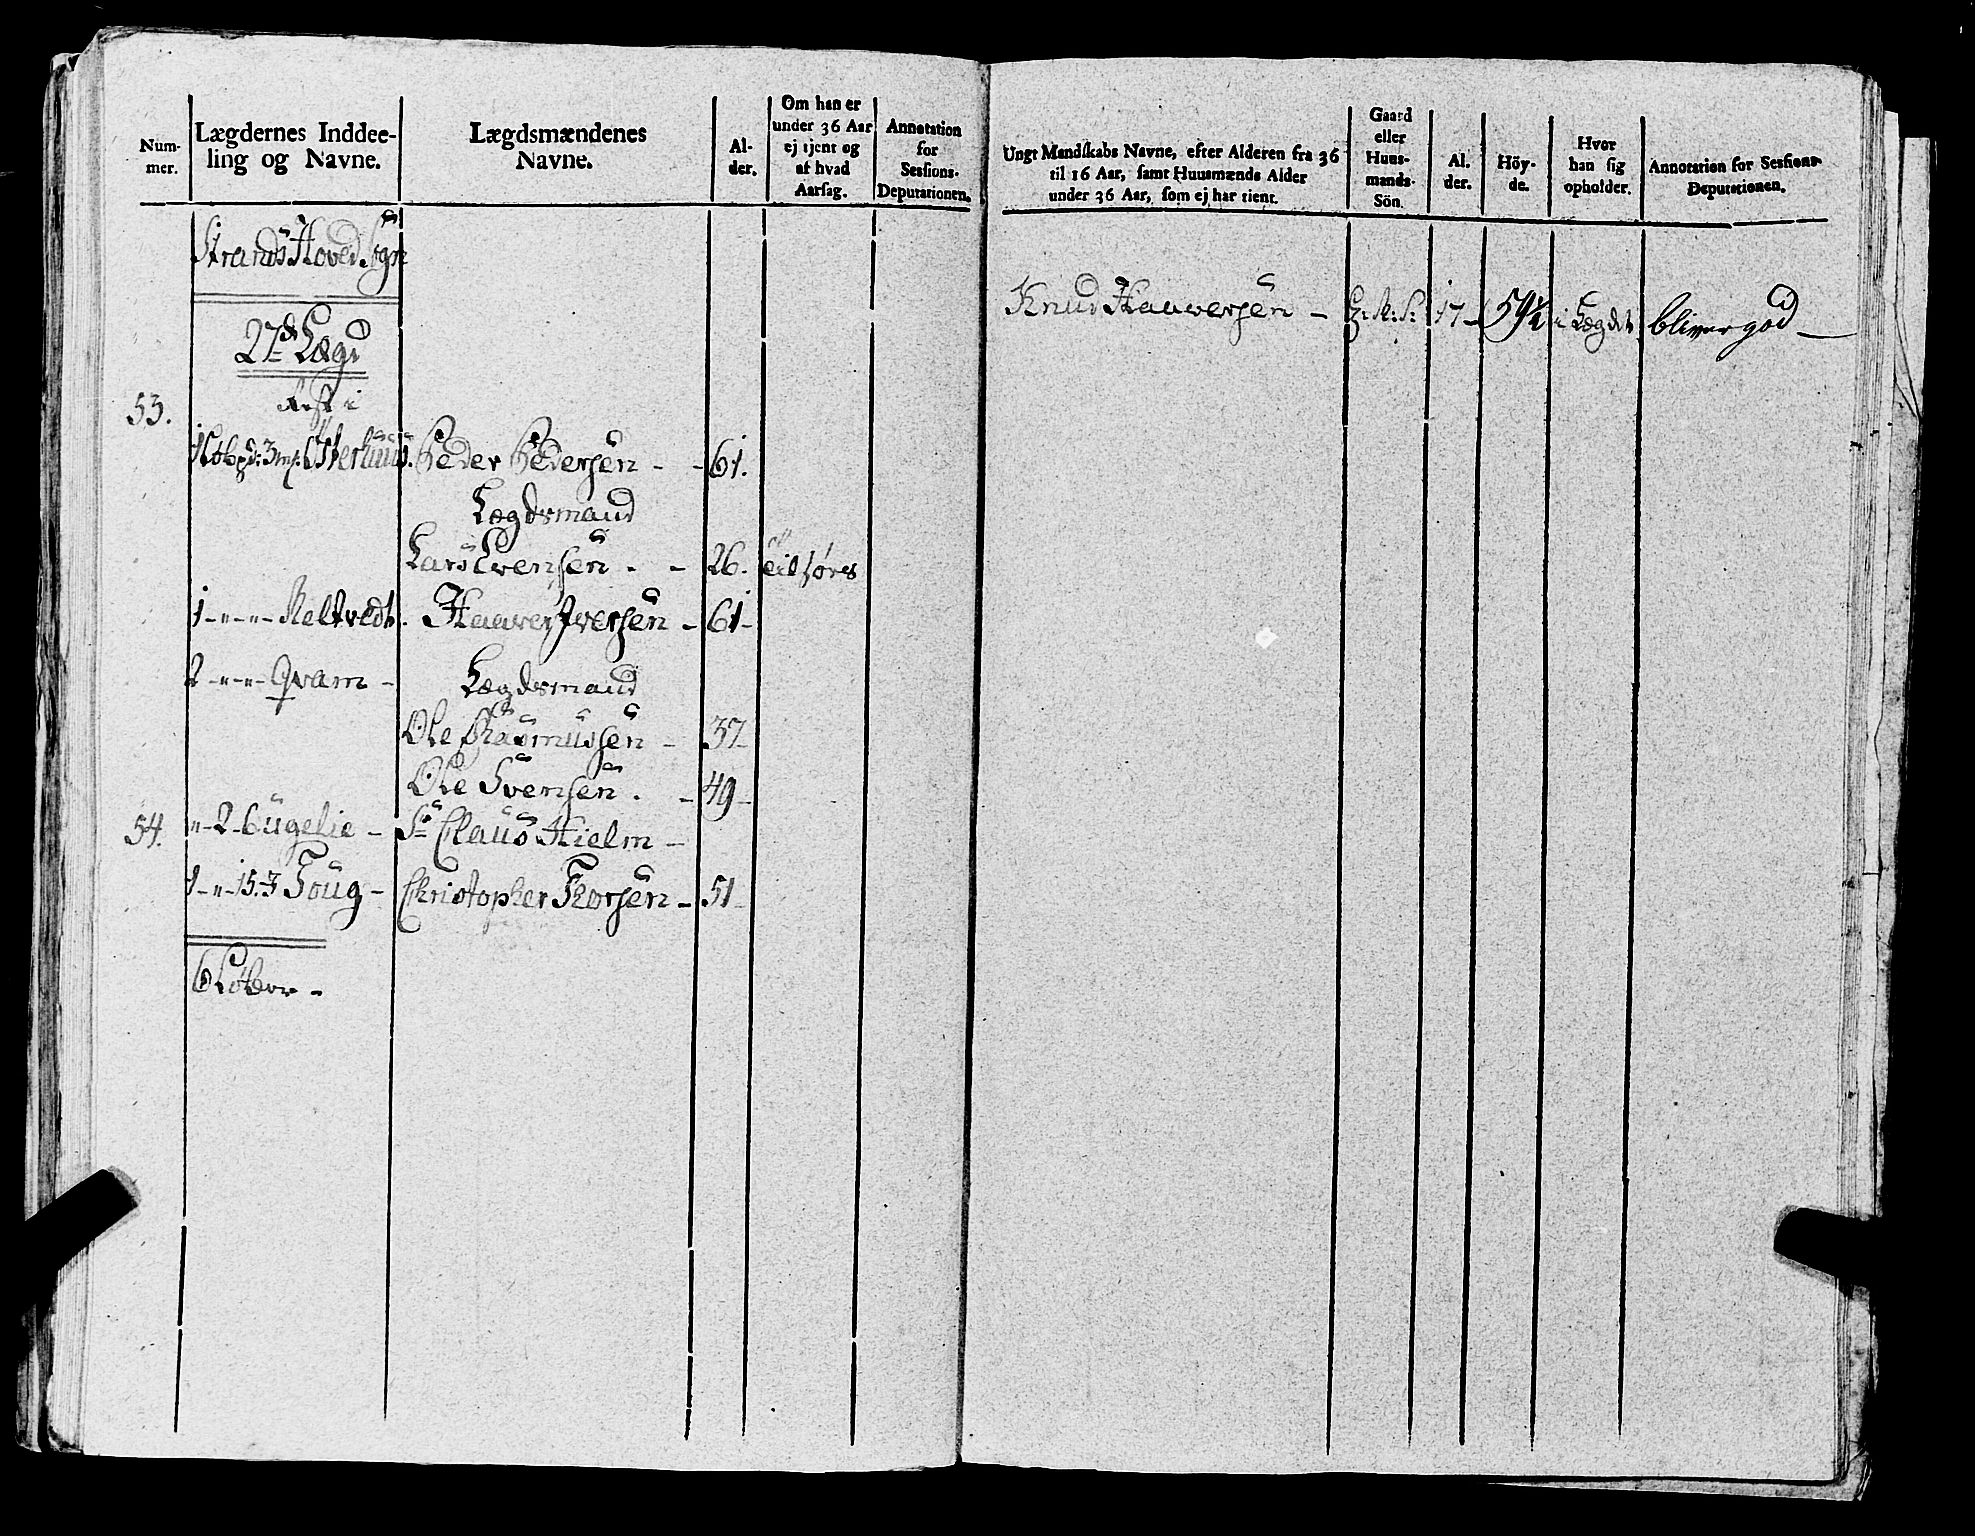 Num-
mer.
Lægdernes Inddee-
ling og Navne.
Lægdsmændenes
Navne.
Al-
der.
Om han er
under 36 Aar
ej tjent og
af hvad
Aarsag.
Annotation
for
Sessions-
Deputationen.
Strands Hoved Sogn
27de Lægd
53.
Rest i
Østerhuus.
Peder Pedersen - - 61.
Lægdsmand
Lars Evensen . - 26.
1 - " - " - Reltvedt. Haaver Iversen - 61 -
2 - " - " - Qvam - Lægdsmand
Ole Rasmussen - 37 -
Ole Svensen . - 49 -
54. " - 2 - Sr Claus Hielm -
1 - " - 15. Foug - Christopher Thorsen - 51 -
6
Ungt Mandskabs Navne, efter Alderen fra 36
til 16 Aar, samt Huusmænds Alder
under 36 Aar, som ej har tient.
Gaard
eller
Huus-
mands-
Sön.
Al.
der.
Höy-
de.
Hvor
han sig
opholder.
Annotation for Sessions-
Deputationen.
Knud Haaversen - 17 - i Lægdet bliver god